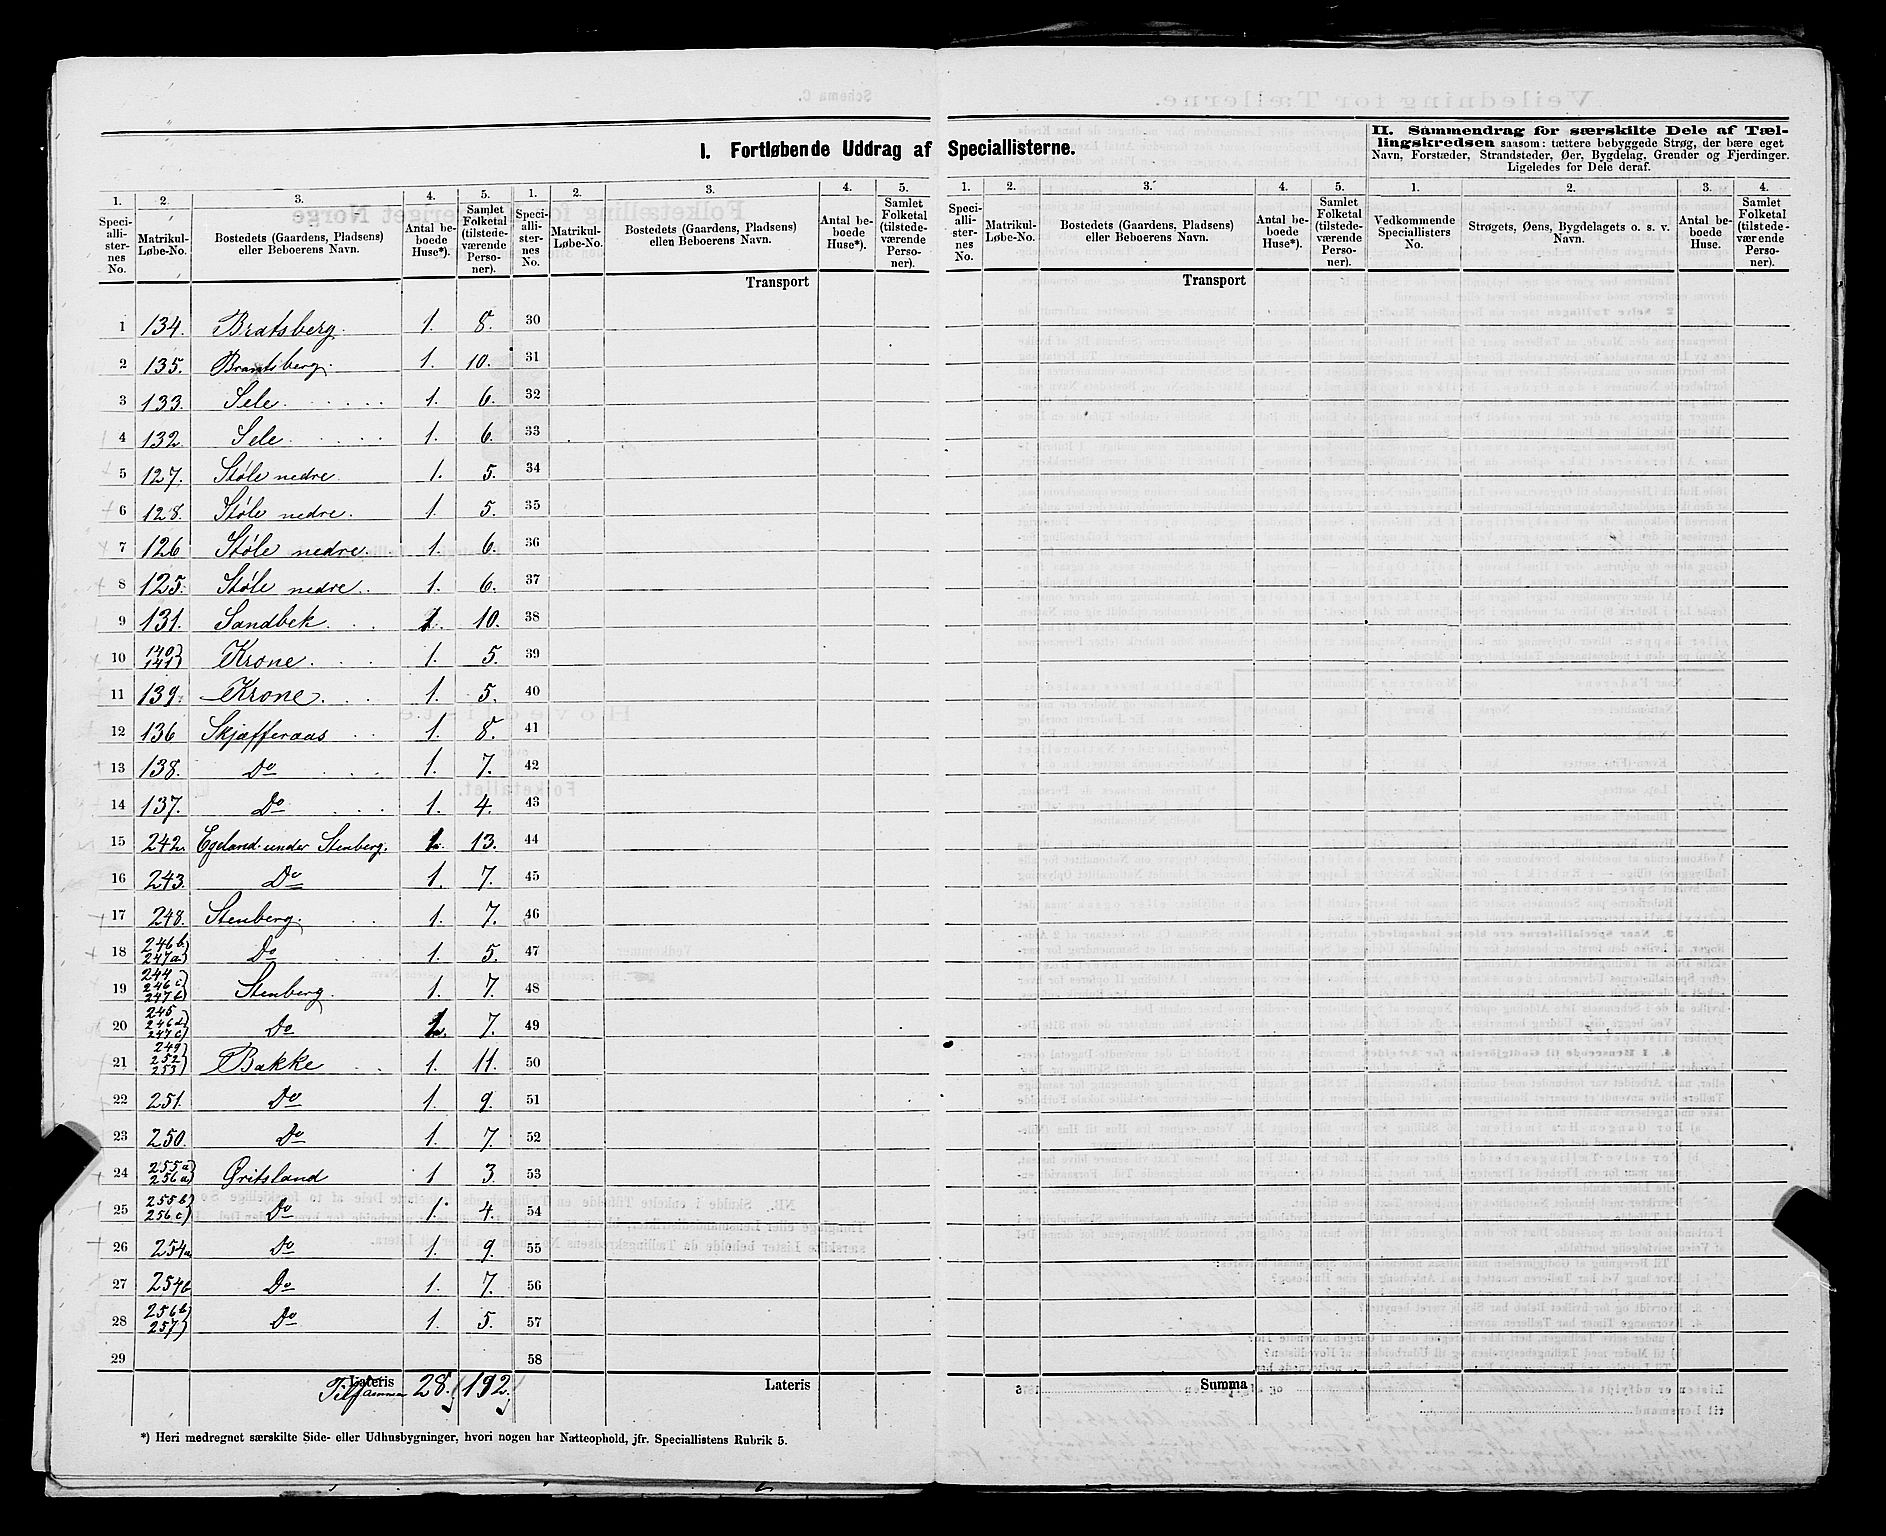 I. Fortløbende Uddrag af Speciallisterne.
II. Sammendrag for særskilte Dele af Tæl-
lingskredsen saasom: tættere bebyggede Strøg, der bære eget
Navn, Forstæder, Strandsteder, Øer, Bygdelag, Grender og Fjerdinger.
Ligeledes for Dele deraf.
1. 2. 3. 4. 5. 1. 2. 3. 4. 5. 1. 2. 3. 4. 5. 1. 2. 3. 4.
Speci-allister-nes No. Matrikul-Løbe-No. Bostedets (Gaardens, Pladsens) eller Beboerens Navn. Antal be-boede Huse*). Samlet Folketal (tilstede-værende Perso-ner).
Speci-allister-nes No. Matrikul-Løbe-No. Bostedets (Gaardens, Pladsens) ellen Beboerens Navn. Antal be-boede Huse*). Samlet Folketal (tilstede-værende Perso-ner).
Speci-allister-nes No. Matrikul-Løbe-No. Bostedets (Gaardens, Pladsens) eller Beboerens Navn. Antal be-boede Huse*). Samlet Folketal (tilstede-værende Perso-ner).
Vedkommende Speciallisters No. Strøgets, Øens, Bygdelagets o. s. v. Navn. Antal be-boede Huse. Samlet Folketal (tilstede-værende Personer).
Transport Transport
1 134. Bratsberg. 1. 8. 30
2 135. Bratsberg. 1. 10. 31
3 133. Sele. 1. 6. 32
4 132. Sele. 1. 6. 33
5 127. Støle nedre. 1. 5. 34
6 128. Støle nedre. 1. 5. 35
7 126 Støle nedre. 1. 6. 36
8 125. Støle nedre. 1. 6. 37
9 131. Sandbek. 1. 10. 38
10 140) 141) Krone. 1. 5. 39
11 139. Krone. 1. 5. 40
12 136 Skjæfferaas 1. 8. 41
13 138. Do 1. 7. 42
14 137. Do 1. 4. 43
15 242. Egeland under Stenberg. 1. 13. 44
16 243. Do 1. 7. 45
17 248. Stenberg. 1. 7. 46
18 246b) 247a) Do 1. 5. 47
19 244 246c) 247b) Stenberg. 1. 7. 48
20 245 246d) 247c) Do 1. 7. 49
21 249) 252) 253) Bakke 1. 11. 50
22 251. Do 1. 9. 51
23 250. Do 1. 7. 52
24 255a) 256a) Øritsland 1 3. 53
25 255b) 256c) Do 1. 4. 54
26 254a Do 1. 9. 55
27 254b Do 1. 7. 56
28 256b) 257) Do 1. 5. 57
29 58
Lateris Tilsammen 28. 192. Lateris Summa
*) Heri medregnet særskilte Side- eller Udhusbygninger, hvori nogen har Natteophold, jfr. Speciallistens Rubrik 5.